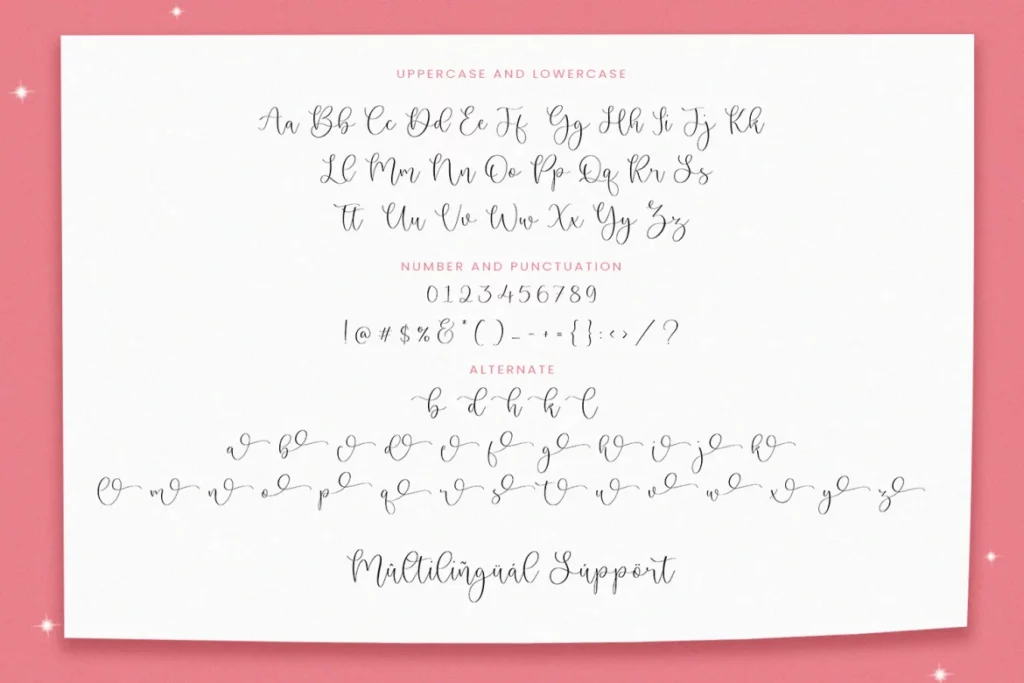 UPPERCASE AND LOWERCASE
Aa Bb Cc Dd Ee Ff Gg Hh Ii Jj Kk
Ll Mm Nn Oo Pp Qq Rr Ss
Tt Uu Vv Ww Xx Yy Zz
NUMBER AND PUNCTUATION
0 1 2 3 4 5 6 7 8 9
! @ # $ % & * ( ) _ - + = { } : < > / ?
ALTERNATE
b d h k l
a b c d e f g h i j k
l m n o p q r s t u v w x y z
Mûltilíñgüál Súppört